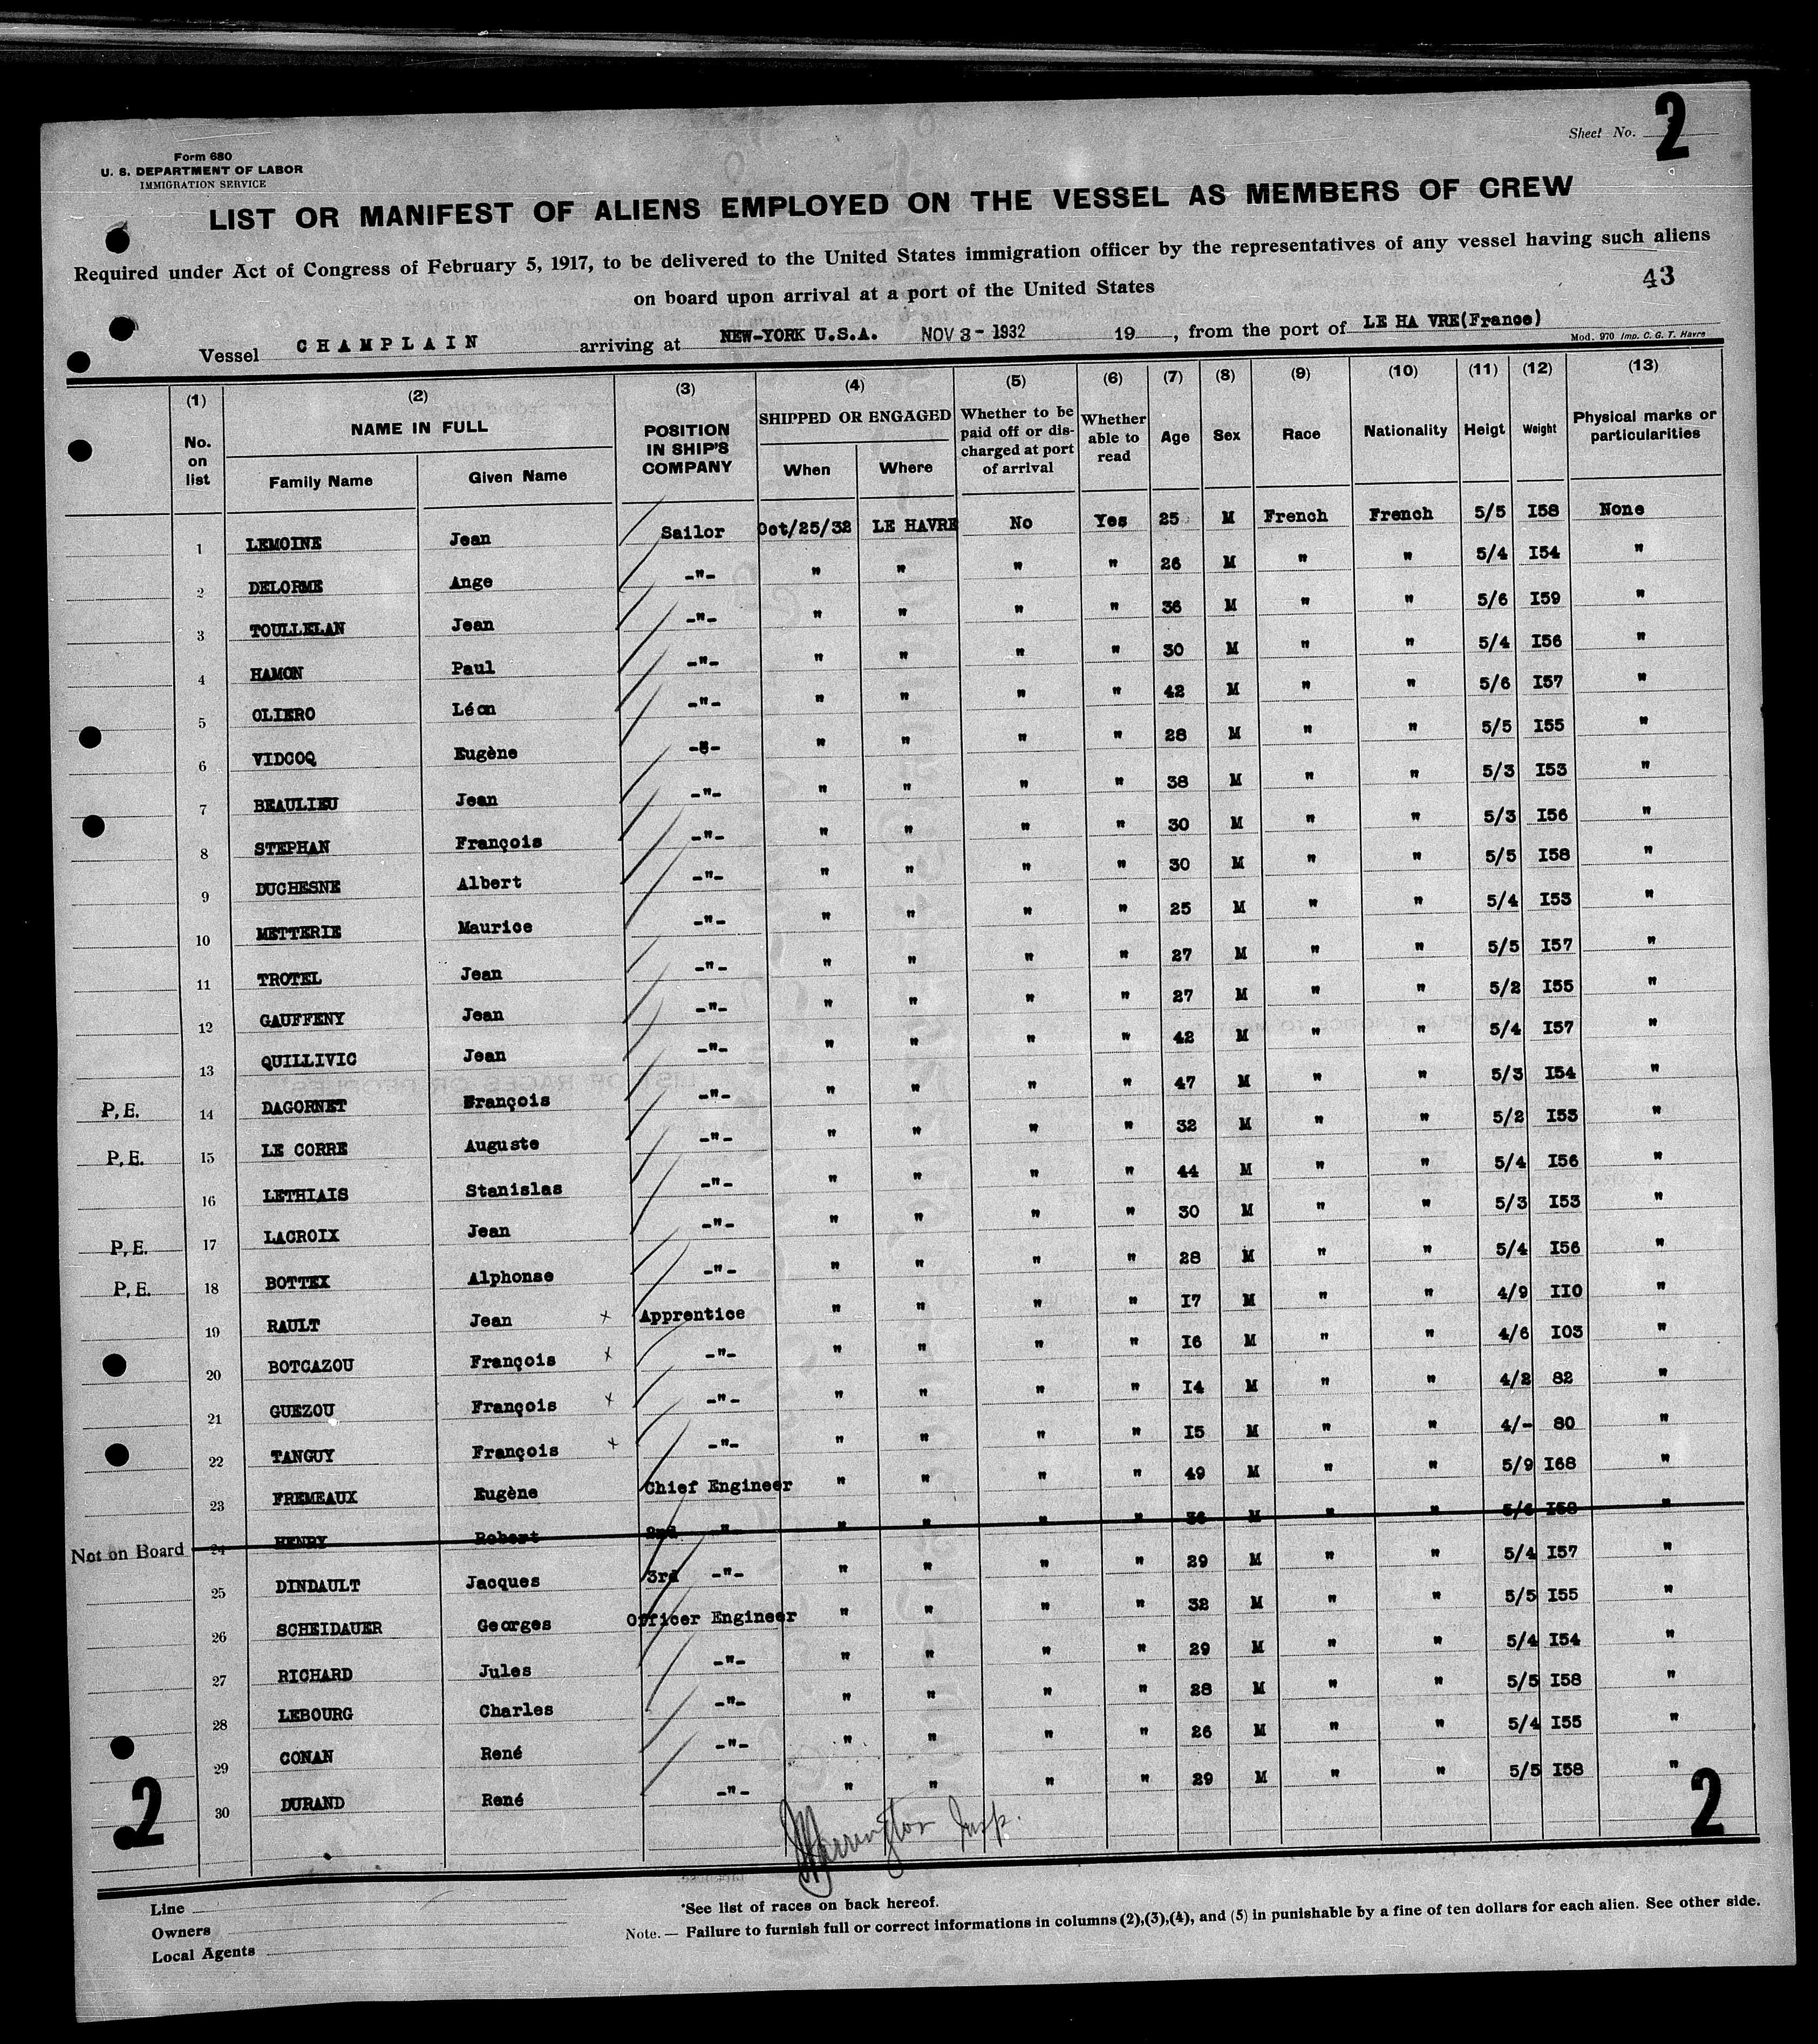 Sheet No. 2
Form 680
U. S. DEPARTMENT OF LABOR
IMMIGRATION SERVICE
LIST OR MANIFEST OF ALIENS EMPLOYED ON THE VESSEL AS MEMBERS OF CREW
Required under Act of Congress of February 5, 1917, to be delivered to the United States immigration officer by the representatives of any vessel having such aliens
on board upon arrival at a port of the United States
43
Vessel CHAMPLAIN arriving at NEW-YORK U.S.A. NOV 3 - 1932 19 , from the port of LE HA VRE(France)
Mod. 970 Imp. C. G. T. Havre
(1) (2) (3) (4) (5) (6) (7) (8) (9) (10) (11) (12) (13)
No. on list NAME IN FULL Family Name Given Name POSITION IN SHIP'S COMPANY SHIPPED OR ENGAGED When Where Whether to be paid off or discharged at port of arrival Whether able to read Age Sex Race Nationality Heigt Weight Physical marks or particularities
1 LEMOINE Jean Sailor Oct/25/32 LE HAVRE No Yes 25 M French French 5/5 I58 None
2 DELORME Ange -"- " " " " 26 M " " 5/4 I54 "
3 TOULLELAN Jean -"- " " " " 36 M " " 5/6 I59 "
4 HAMON Paul -"- " " " " 30 M " " 5/4 I56 "
5 OLIERO Léon -"- " " " " 42 M " " 5/6 I57 "
6 VIDCOQ Eugène -"- " " " " 28 M " " 5/5 I55 "
7 BEAULIEU Jean -"- " " " " 38 M " " 5/3 I53 "
8 STEPHAN François -"- " " " " 30 M " " 5/3 I56 "
9 DUCHESNE Albert -"- " " " " 30 M " " 5/5 I58 "
10 METTERIE Maurice -"- " " " " 25 M " " 5/4 I53 "
11 TROTEL Jean -"- " " " " 27 M " " 5/5 I57 "
12 GAUFFENY Jean -"- " " " " 27 M " " 5/2 I55 "
13 QUILLIVIC Jean -"- " " " " 42 M " " 5/4 I57 "
P.E. 14 DAGORNET François -"- " " " " 47 M " " 5/3 I54 "
P.E. 15 LE CORRE Auguste -"- " " " " 32 M " " 5/2 I53 "
16 LETHIAIS Stanislas -"- " " " " 44 M " " 5/4 I56 "
P.E. 17 LACROIX Jean -"- " " " " 30 M " " 5/3 I53 "
P.E. 18 BOTTEX Alphonse -"- " " " " 28 M " " 5/4 I56 "
19 RAULT Jean x Apprentice " " " " I7 M " " 4/9 II0 "
20 BOTCAZOU François x -"- " " " " I6 M " " 4/6 I03 "
21 GUEZOU François x -"- " " " " I4 M " " 4/2 82 "
22 TANGUY François x -"- " " " " I5 M " " 4/- 80 "
23 FREMEAUX Eugène Chief Engineer " " " " 49 M " " 5/9 I68 "
Not on Board 24 HENRY Robert 2nd -"- " " " " 36 M " " 5/6 I58 "
25 DINDAULT Jacques 3rd -"- " " " " 29 M " " 5/4 I57 "
26 SCHEIDAUER Georges Officer Engineer " " " " 32 M " " 5/5 I55 "
27 RICHARD Jules -"- " " " " 29 M " " 5/4 I54 "
28 LEBOURG Charles -"- " " " " 28 M " " 5/5 I58 "
29 CONAN René -"- " " " " 26 M " " 5/4 I55 "
30 DURAND René -"- " " " " 29 M " " 5/5 I58 "
2 2
Harrington Insp.
Line
Owners
Local Agents
*See list of races on back hereof.
Note. — Failure to furnish full or correct informations in columns (2),(3),(4), and (5) in punishable by a fine of ten dollars for each alien. See other side.